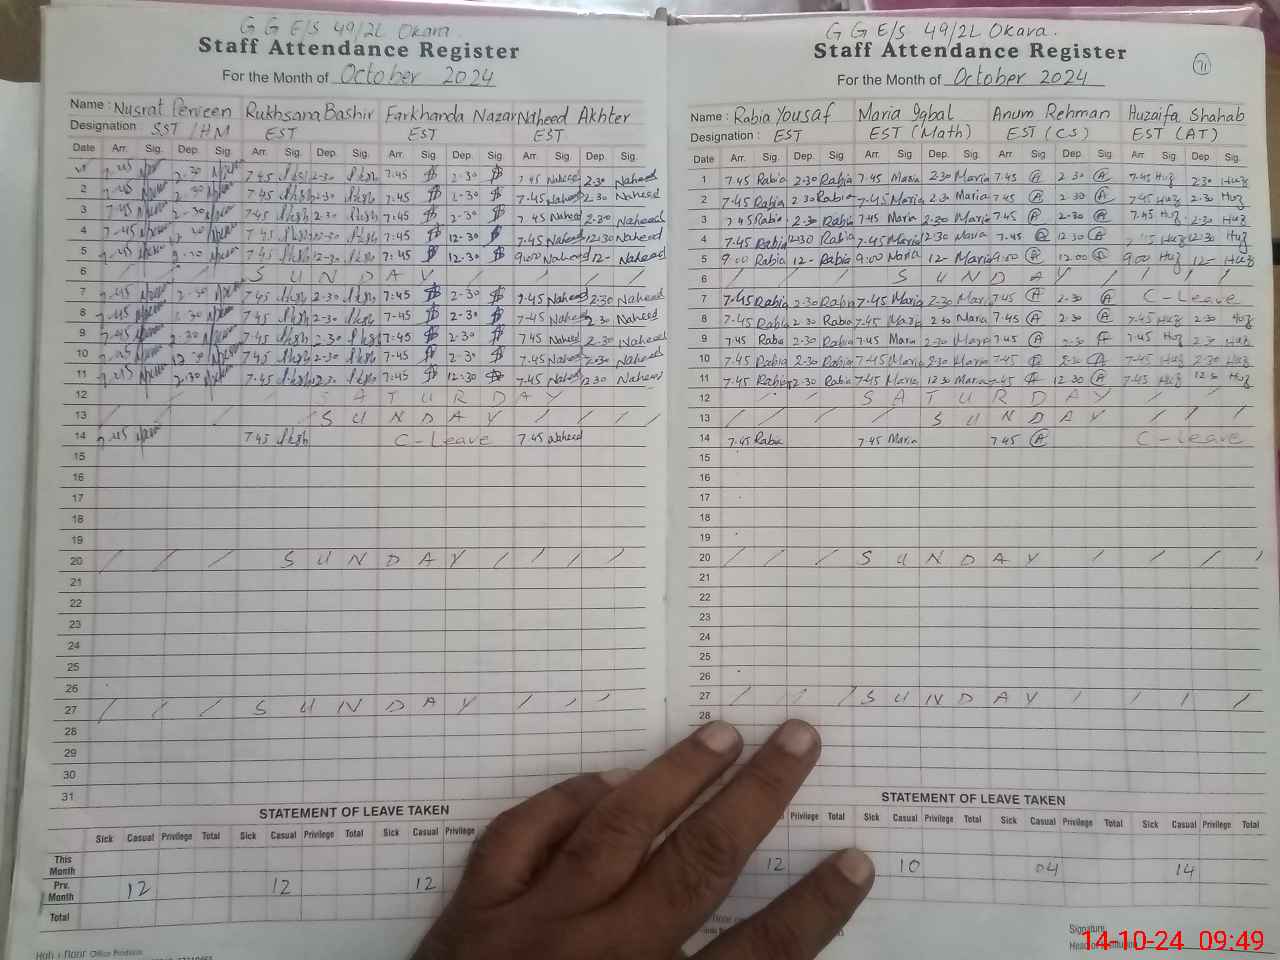 G G E/S 49/2L Okara.
Staff Attendance Register
For the Month of October 2024
Name : Nusrat Perveen Rukhsana Bashir Farkhanda Nazar Naheed Akhter
Designation : SST / HM EST EST EST
Date Arr. Sig. Dep. Sig. Arr. Sig. Dep. Sig. Arr. Sig. Dep. Sig. Arr. Sig. Dep. Sig.
7.45 2.30 7.45 2.30 7:45 2-30 7.45 Naheed 2.30 Naheed
2 7.45 2.30 7.45 2.30 7.45 2-30 7.45 Naheed 2.30 Naheed
3 7.45 2.30 7.45 2.30 7:45 2-30 7.45 Naheed 2.30 Naheed
4 7.45 7.45 7:45 12-30 7.45 Naheed 12.30 Naheed
5 7.45 7.45 12-30 7:45 12.30 9.00 Naheed 12- Naheed
6 / / / / S U N D A Y / / / /
7 7.45 2.30 7.45 2.30 7:45 2-30 7.45 Naheed 2.30 Naheed
8 7.45 2.30 7.45 2-30 7:45 2-30 7.45 Naheed 2.30 Naheed
9 7.45 2.30 7.45 2.30 7:45 2-30 7.45 Naheed 2.30 Naheed
10 7.45 7.45 2-30 7:45 2-30 7.45 Naheed 2.30 Naheed
11 7.45 7.45 7:45 12-30 7.45 Naheed 12.30 Naheed
12 / / / S A T U R D A Y / /
13 / / / / / / S U N D A Y / / / /
14 7.45 7.45 C-Leave 7.45 Naheed
15
16
17
18
19
20 / / / S U N D A Y / / / /
21
22
23
24
25
26
27 / / / S U N D A Y / / / /
28
29
30
31
STATEMENT OF LEAVE TAKEN
Sick Casual Privilege Total Sick Casual Privilege Total Sick Casual Privilege
This Month
Prv. Month 12 12 12
Total
Office Products
G G E/S 49/2L Okara.
Staff Attendance Register
71
For the Month of October 2024
Name : Rabia Yousaf Maria Iqbal Anum Rehman Huzaifa Shahab
Designation : EST EST (Math) EST (CS) EST (AT)
Date Arr. Sig. Dep. Sig. Arr. Sig. Dep. Sig. Arr. Sig. Dep. Sig. Arr. Sig. Dep. Sig.
1 7.45 Rabia 2.30 Rabia 7.45 Maria 2.30 Maria 7.45 A 2.30 A 7.45 Huz 2.30 Huz
2 7.45 Rabia 2.30 Rabia 7.45 Maria 2.30 Maria 7.45 A 2.30 A 7.45 Huz 2.30 Huz
3 7.45 Rabia 2.30 Rabia 7.45 Maria 2.30 Maria 7.45 A 2.30 A 7.45 Huz 2.30 Huz
4 7.45 Rabia 12.30 Rabia 7.45 Maria 12.30 Maria 7.45 A 12.30 A Huz 12.30 Huz
5 9.00 Rabia 12- Rabia 9.00 Maria 12- Maria 9.00 A 12.00 A 9.00 Huz 12- Huz
6 / / / / S U N D A Y / / / /
7 7.45 Rabia 2.30 Rabia 7.45 Maria 2.30 Maria 7.45 A 2.30 A C-Leave
8 7.45 Rabia 2.30 Rabia 7.45 Maria 2.30 Maria 7.45 A 2.30 A 7.45 Huz 2.30 Huz
9 7.45 Rabia 2.30 Rabia 7.45 Maria 2.30 Maria 7.45 A 2.30 A 7.45 Huz 2.30 Huz
10 7.45 Rabia 2.30 Rabia 7.45 Maria 2.30 Maria 7.45 A 2.30 A 7.45 Huz 2.30 Huz
11 7.45 Rabia 12.30 Rabia 7.45 Maria 12.30 Maria 7.45 A 12.30 A 7.45 Huz 12.30 Huz
12 / / / S A T U R D A Y / / /
13 / / / / S U N D A Y / / /
14 7.45 Rabia 7.45 Maria 7.45 A C-Leave
15
16
17
18
19
20 / / / S U N D A Y / / / /
21
22
23
24
25
26
27 / / / S U N D A Y / / / /
28
STATEMENT OF LEAVE TAKEN
Privilege Total Sick Casual Privilege Total Sick Casual Privilege Total Sick Casual Privilege Total
12 10 04 14
Signature
Head of Institution
14-10-24 09:49